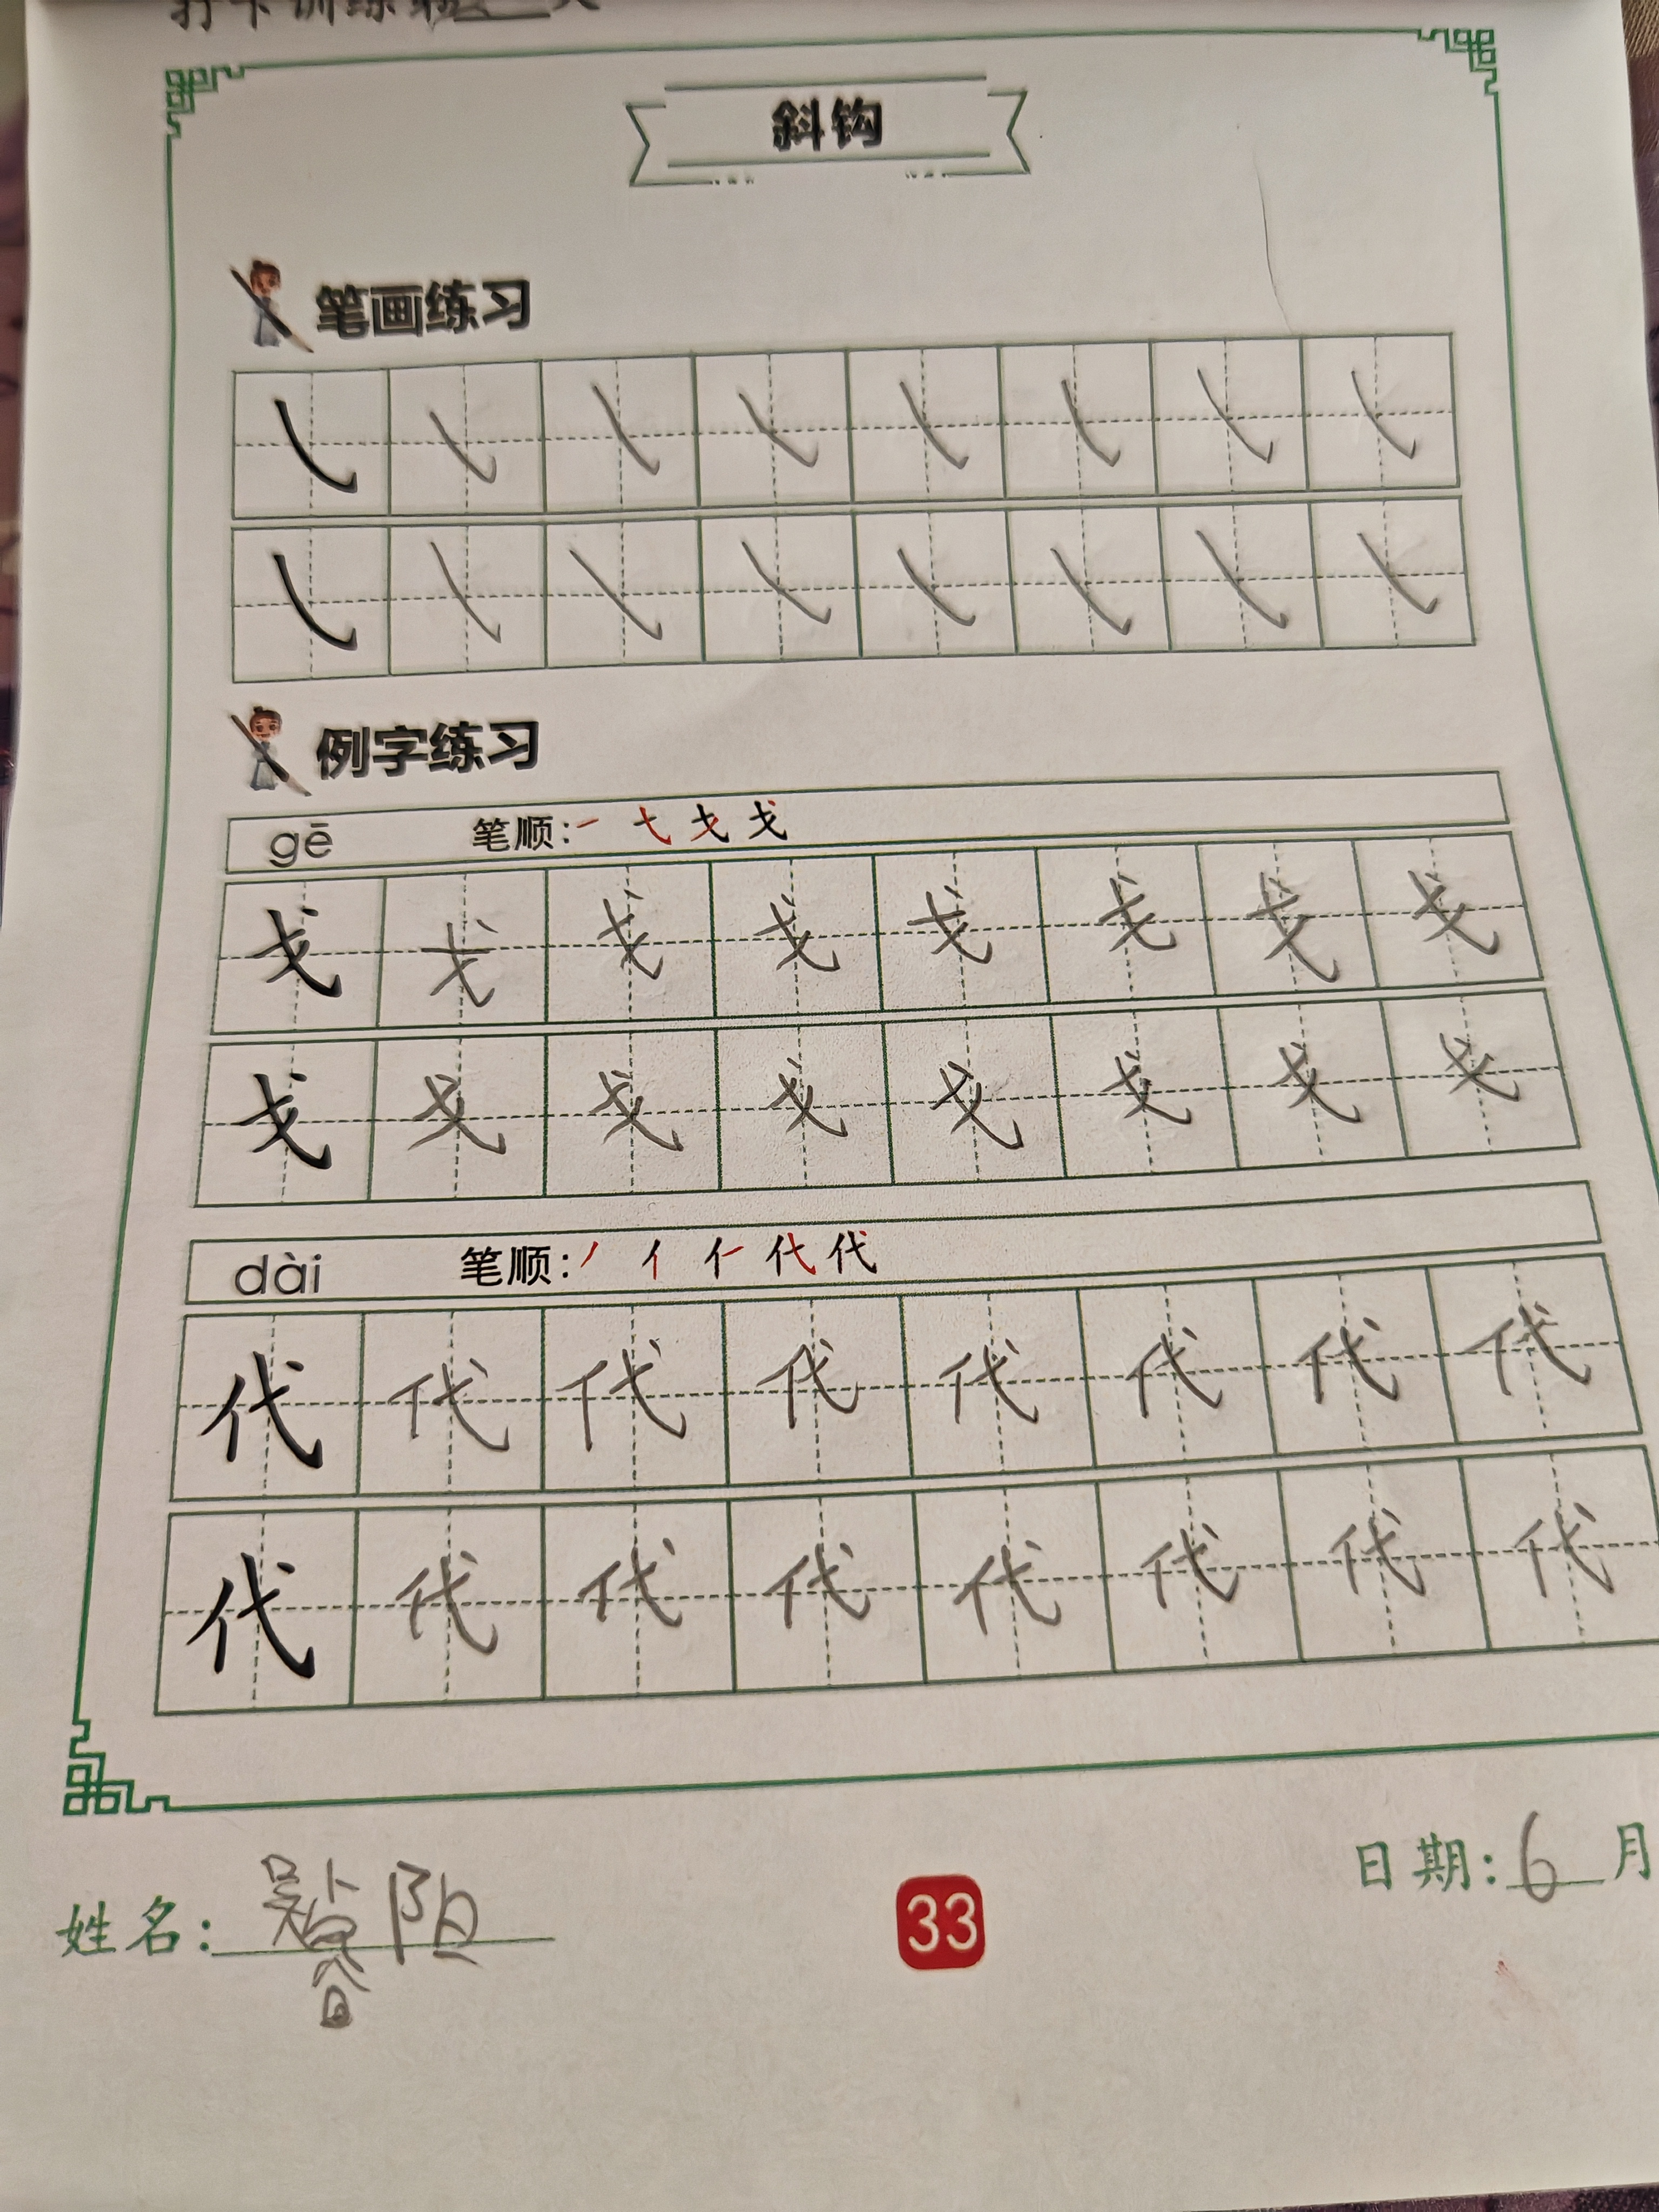 打卡训练第 天
斜钩
笔画练习
例字练习
gē 笔顺:一 戈 戈
戈 戈 戈 戈 戈 戈 戈 戈
戈 戈 戈 戈 戈 戈 戈 戈
dài 笔顺:丿 亻 代 代
代 代 代 代 代 代 代 代
代 代 代 代 代 代 代 代
姓名:
33
日期:6月